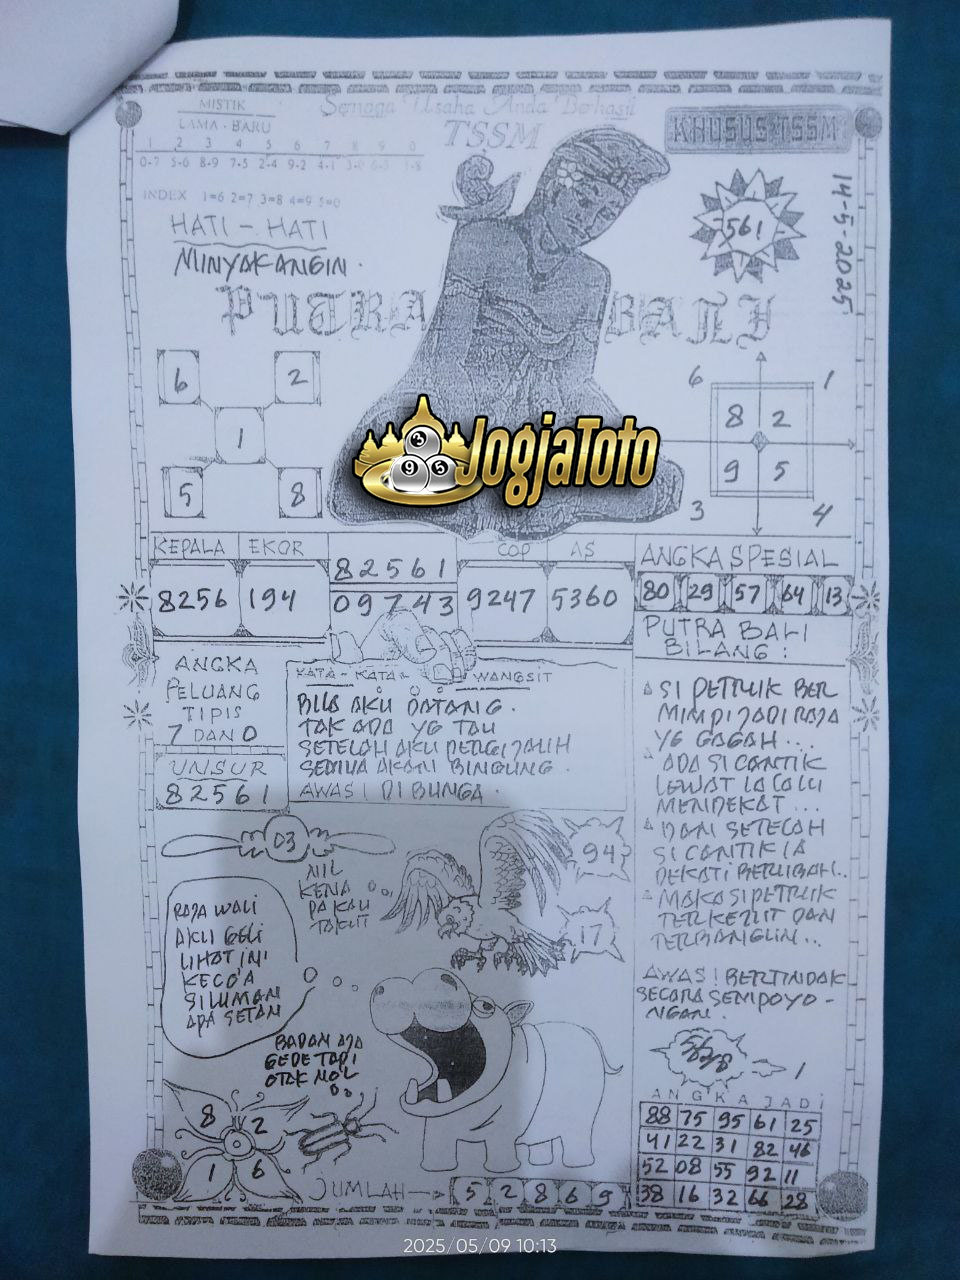 MISTIK
LAMA - BARU
1 2 3 4 5 6 7 8 9 0
0-7 5-6 8-9 7-5 2-4 9-2 4-1
INDEX 1=6 2=7 3=8 4=9 5=0
Semoga Usaha Anda Berhasil
TSSM
KHUSUS TSSM
14-5-2025
561
HATI - HATI
MINYAK ANGIN.
PUTRA BALI
6 2
1
5 8
6 1
8 2
9 5
3 4
JogjaToto
3
9 5
KEPALA EKOR COP AS
8256 194
82561
09743
9247 5360
ANGKA SPESIAL
80 29 57 64 13
ANGKA
PELUANG
TIPIS
7 DAN 0
UNSUR
82561
KATA - KATA WANGSIT
BILA AKU DATANG.
TAK ADA YG TAU
SETELAH AKU PERGI JAUH
SEMUA AKAN BINGUNG.
AWAS! DI BUNGA.
PUTRA BALI
BILANG:
SI PETRUK BER
MIMPI JADI RAJA
YG GAGAH...
ADA SI CANTIK
LEWAT LALALU
MENDEKAT...
DAN SETELAH
SI CANTIK IA
DEKATI BERUBAH..
MAKA SI PETRUK
TERKEJUT DAN
TERBANGUN...
AWAS! BERTINDAK
SECARA SEMPOYO-
NGAN.
03
NIL
KENA
PA KAU
TAKUT
94
17
RAJA WALI
AKU GELI
LIHAT INI
KECOA
SILUMAN
APA SETAN
BADAN AJA
GEDE TAPI
OTAK NOL
8 2
1 6
JUMLAH 5 2 8 6 9
ANGKA JADI
88 75 95 61 25
41 22 31 82 46
52 08 55 92 11
38 16 32 66 28
2025/05/09 10:13